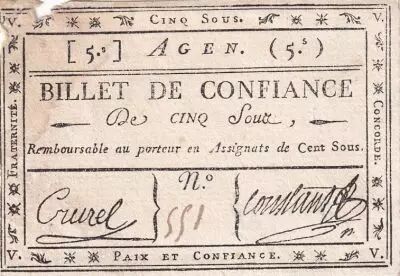 V. CINQ SOUS. V.
[5.s] AGEN. (5.s)
FRATERNITÉ.
CONCORDE.
BILLET DE CONFIANCE
De CINQ Sous,
Remboursable au porteur en Assignats de Cent Sous.
N.o
Cruzel 551 Constans
V. PAIX ET CONFIANCE. V.